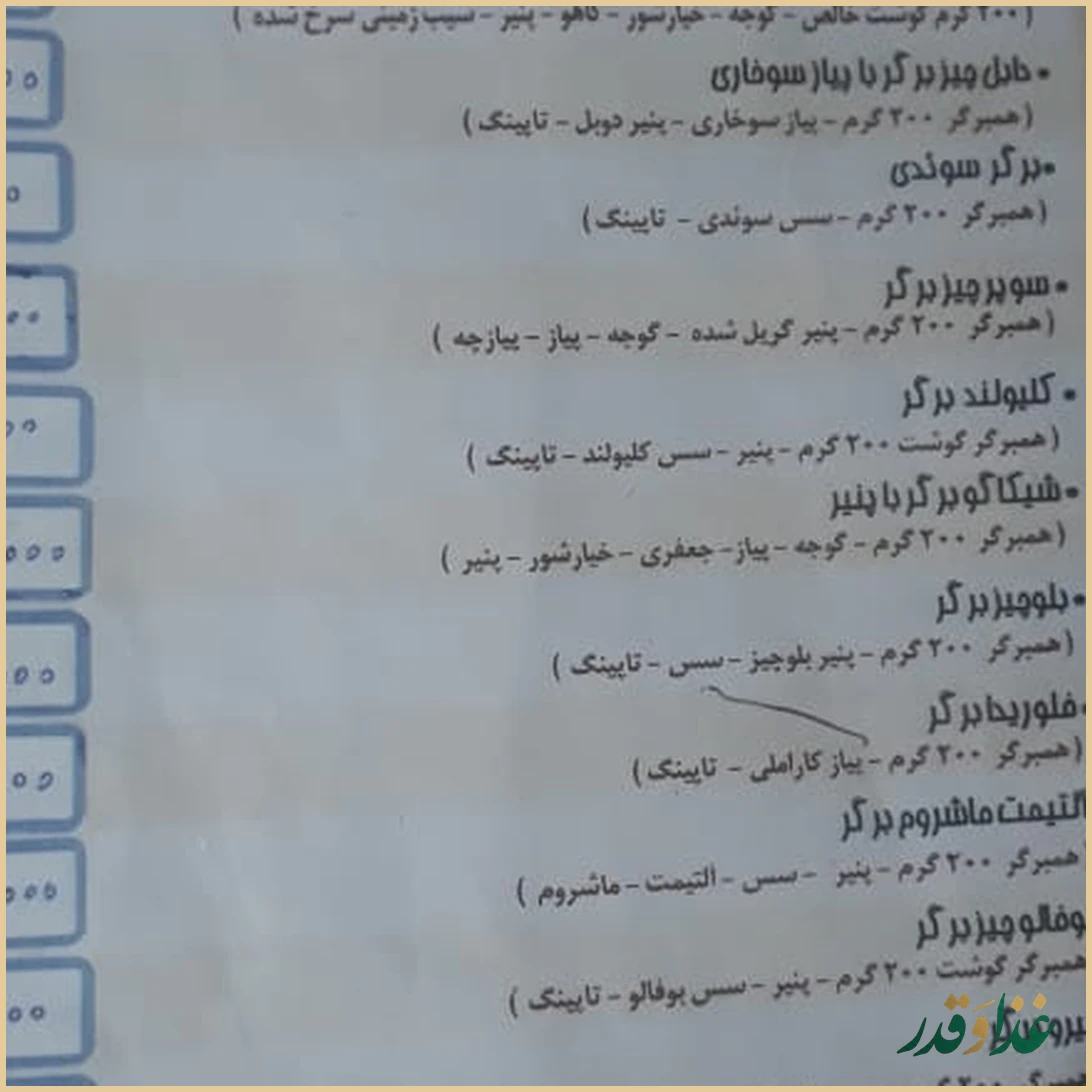 (۲۰۰ گرم گوشت خالص - گوجه - خیارشور - کاهو - پنیر - سیب زمینی سرخ شده )
• دابل چیز برگر با پیاز سوخاری
(همبرگر ۲۰۰ گرم - پیاز سوخاری - پنیر دوبل - تاپینگ )
• برگر سوئدی
(همبرگر ۲۰۰ گرم - سس سوئدی - تاپینگ)
• سوپر چیز برگر
(همبرگر ۲۰۰ گرم - پنیر گریل شده - گوجه - پیاز - پیازچه )
• کلیولند برگر
(همبرگر گوشت ۲۰۰ گرم - پنیر - سس کلیولند - تاپینگ )
• شیکاگو برگر با پنیر
(همبرگر ۲۰۰ گرم - گوجه - پیاز - جعفری - خیارشور - پنیر )
• بلوچیز برگر
(همبرگر ۲۰۰ گرم - پنیر بلوچیز - سس - تاپینگ )
• فلوریدا برگر
(همبرگر ۲۰۰ گرم - پیاز کاراملی - تاپینگ)
التیمت ماشروم برگر
(همبرگر ۲۰۰ گرم - پنیر - سس - التیمت - ماشروم )
وفالو چیز برگر
همبرگر گوشت ۲۰۰ گرم - پنیر - سس بوفالو - تاپینگ )
غذا وَ قدر